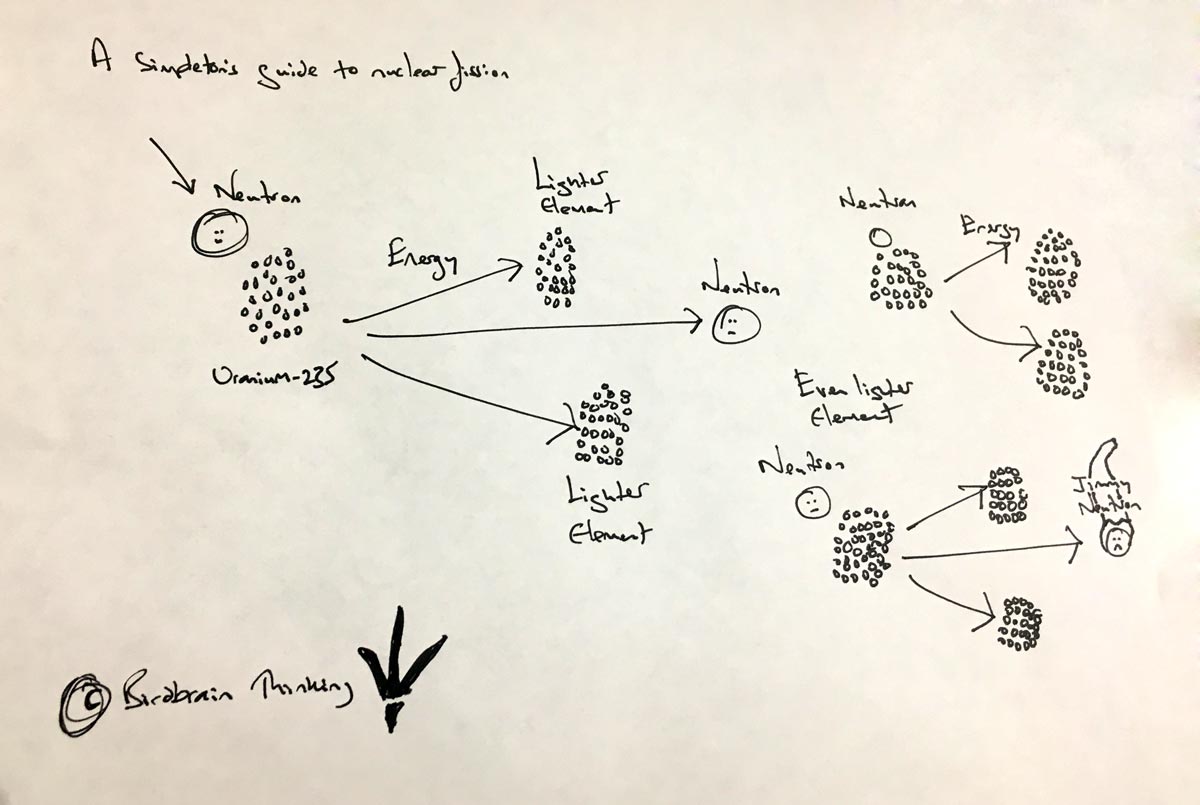 A Simpleton's guide to nuclear fission
Neutron
Uranium-235
Energy
Lighter
Element
Neutron
Lighter
Element
Neutron
Energy
Even lighter
Element
Neutron
Jimmy
Neutron
© Birdbrain Thinking